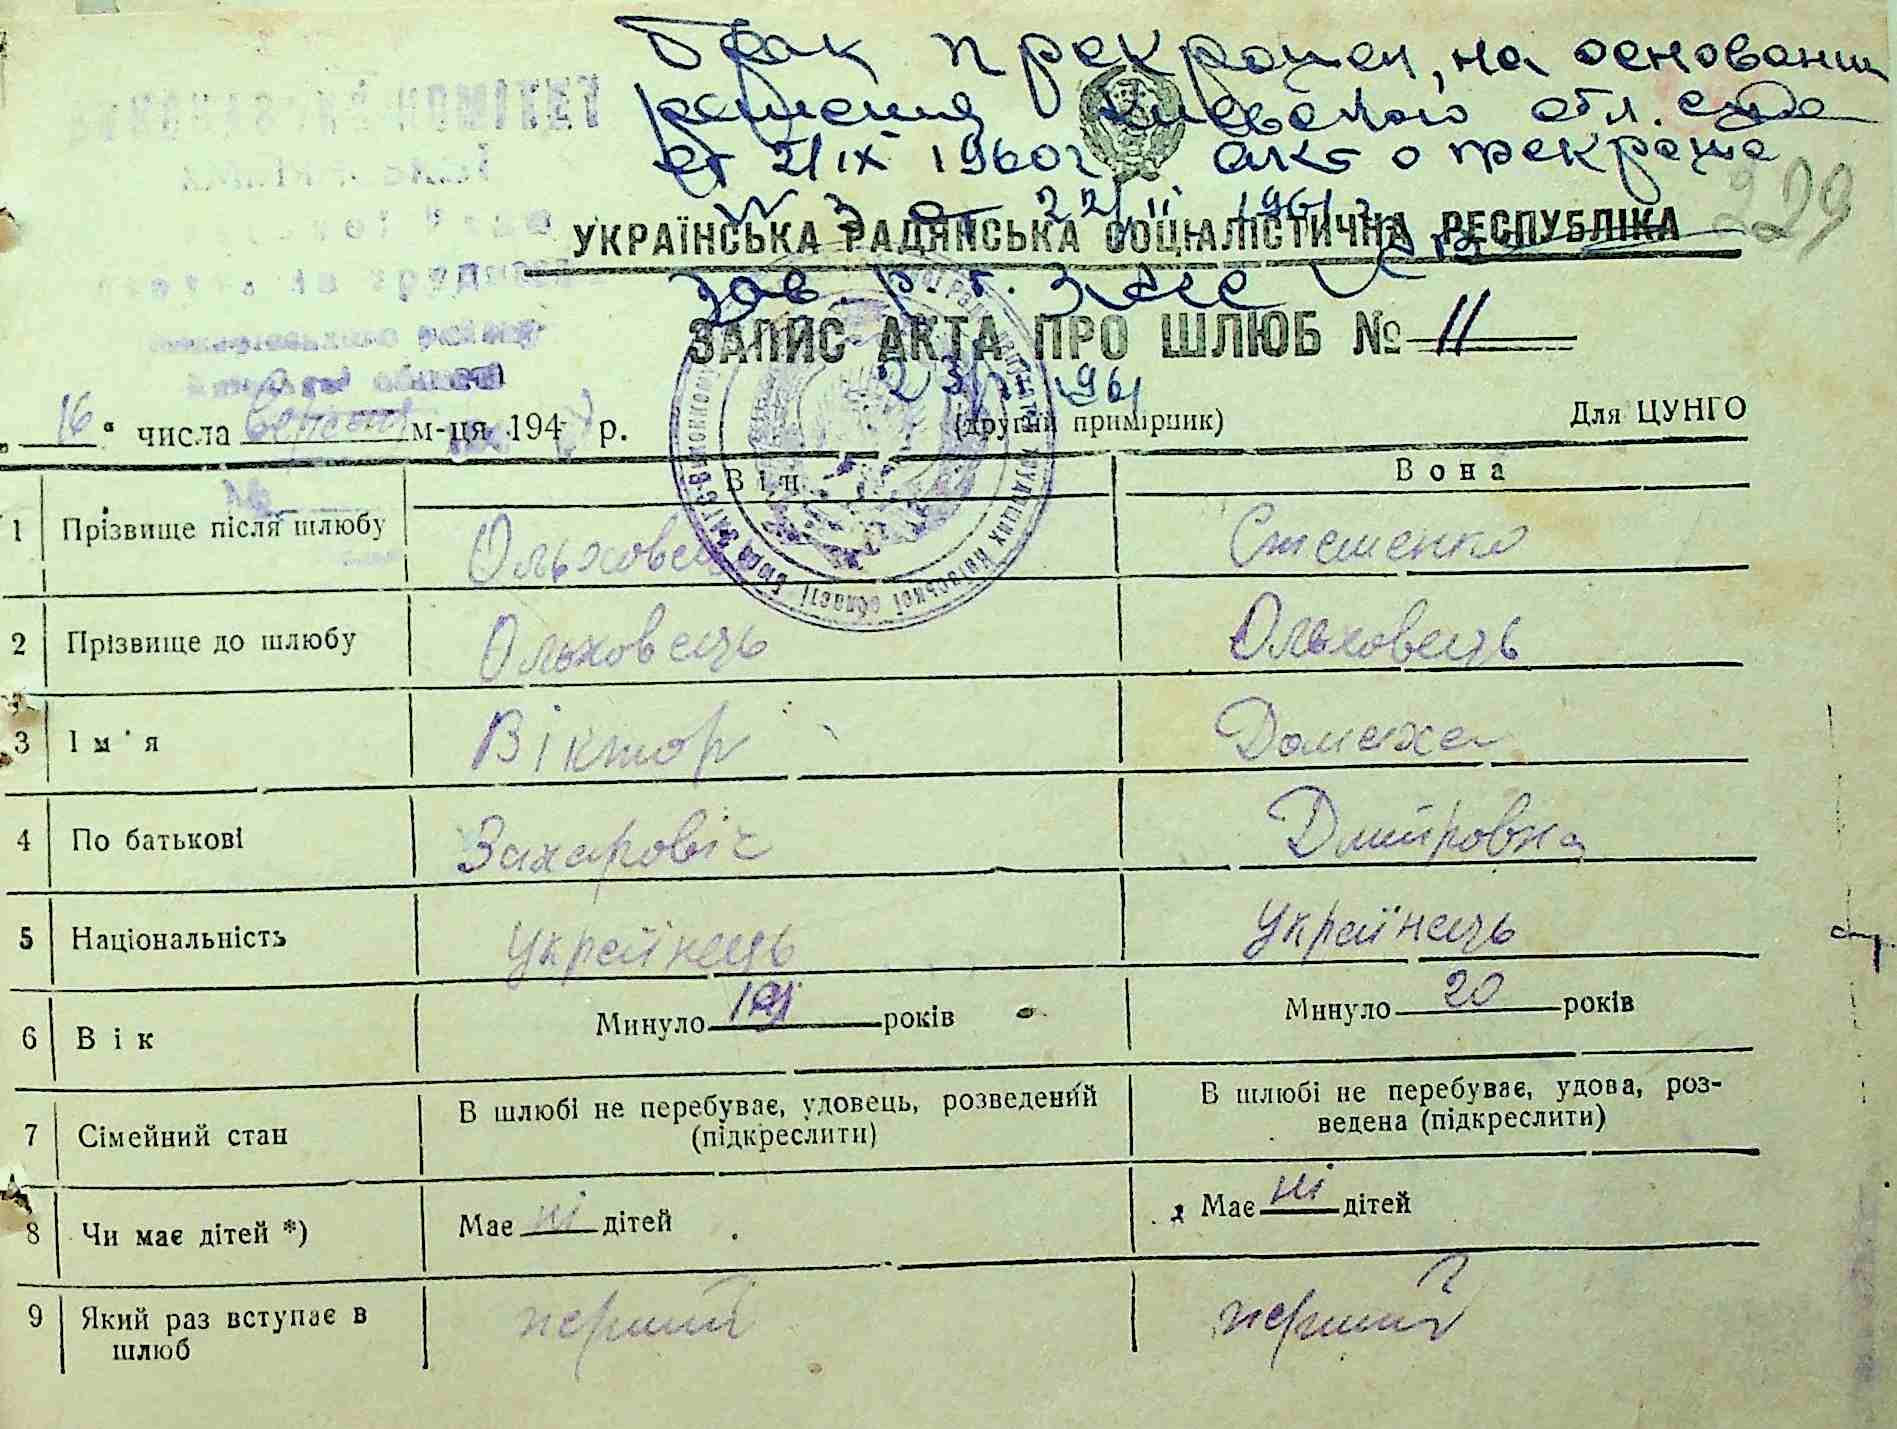 Брак прекращен, на основании
решения Киевского обл. суда
от 21/IX 1960г акт о прекраще
№ 3 от 22/II 1961 г.
229
УКРАЇНСЬКА РАДЯНСЬКА СОЦІАЛІСТИЧНА РЕСПУБЛІКА
Зав. р. б. Загс
ЗАПИС АКТА ПРО ШЛЮБ № 11
23/II 1961
(другий примірник) Для ЦУНГО
„16“ числа вересня м-ця 194 р.
Він Вона
1 Прізвище після шлюбу Ольховець Стешенко
2 Прізвище до шлюбу Ольховець Ольховець
3 Ім'я Віктор Домаха
4 По батькові Захаровіч Дмитровна
5 Національність Українець Українець
6 Вік Минуло 19 років Минуло 20 років
7 Сімейний стан В шлюбі не перебуває, удовець, розведений (підкреслити) В шлюбі не перебуває, удова, роз-
ведена (підкреслити)
8 Чи має дітей *) Має ні дітей Має ні дітей
9 Який раз вступає в перший перший
шлюб